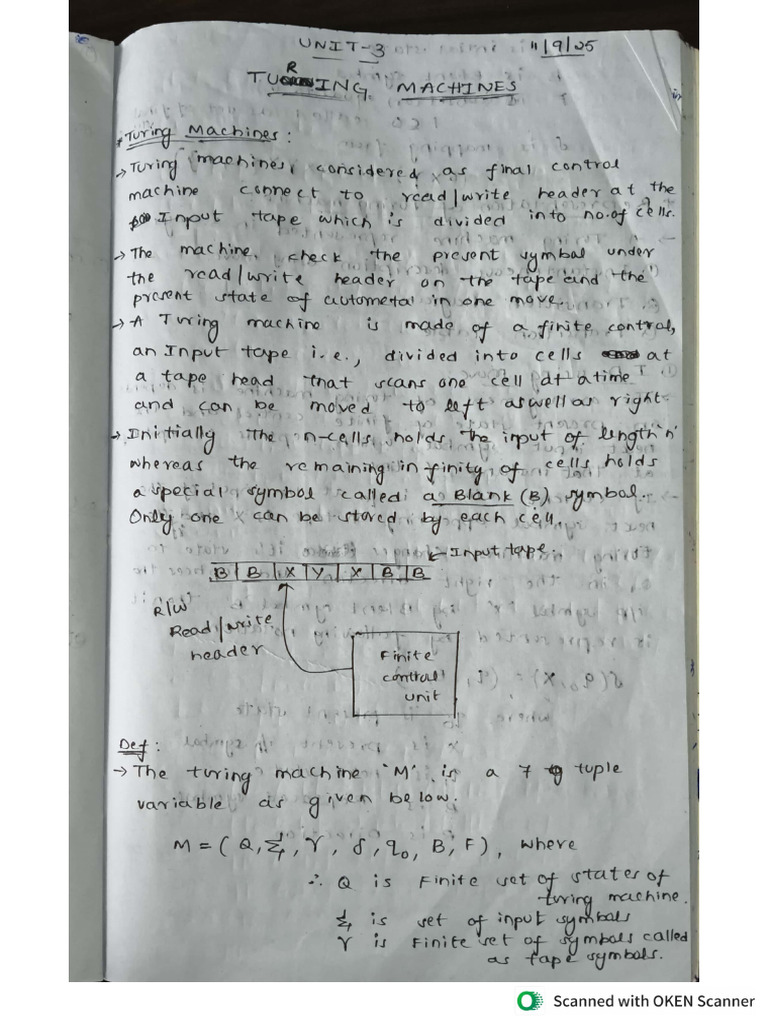 UNIT-3 11/9/25
TURING MACHINES
* Turing Machines:
→ Turing machines, considered as final control
machine connect to read/write header at the
Input tape which is divided into no.of cells.
→ The machine, check the present symbol under
the read/write header on the tape and the
present state of autometa in one move.
→ A Turing machine is made of a finite control,
an Input tape i.e., divided into cells at
a tape head that scans one cell at a time
and can be moved to left aswell as right.
→ Initially the n-cells holds the input of length 'n'
whereas the remaining infinity of cells holds
a special symbol called a Blank (B) symbol.
Only one X can be stored by each cell.
← Input tape.
B B X Y X B B
R/W
Read/write
header
Finite
control
unit
Def:
→ The turing machine 'M' is a 7 tuple
variable as given below.
M = (Q, Σ, Γ, δ, q₀, B, F), where
∴ Q is Finite set of states of
turing machine.
Σ is set of input symbols
Γ is Finite set of symbols called
as tape symbols.
Scanned with OKEN Scanner